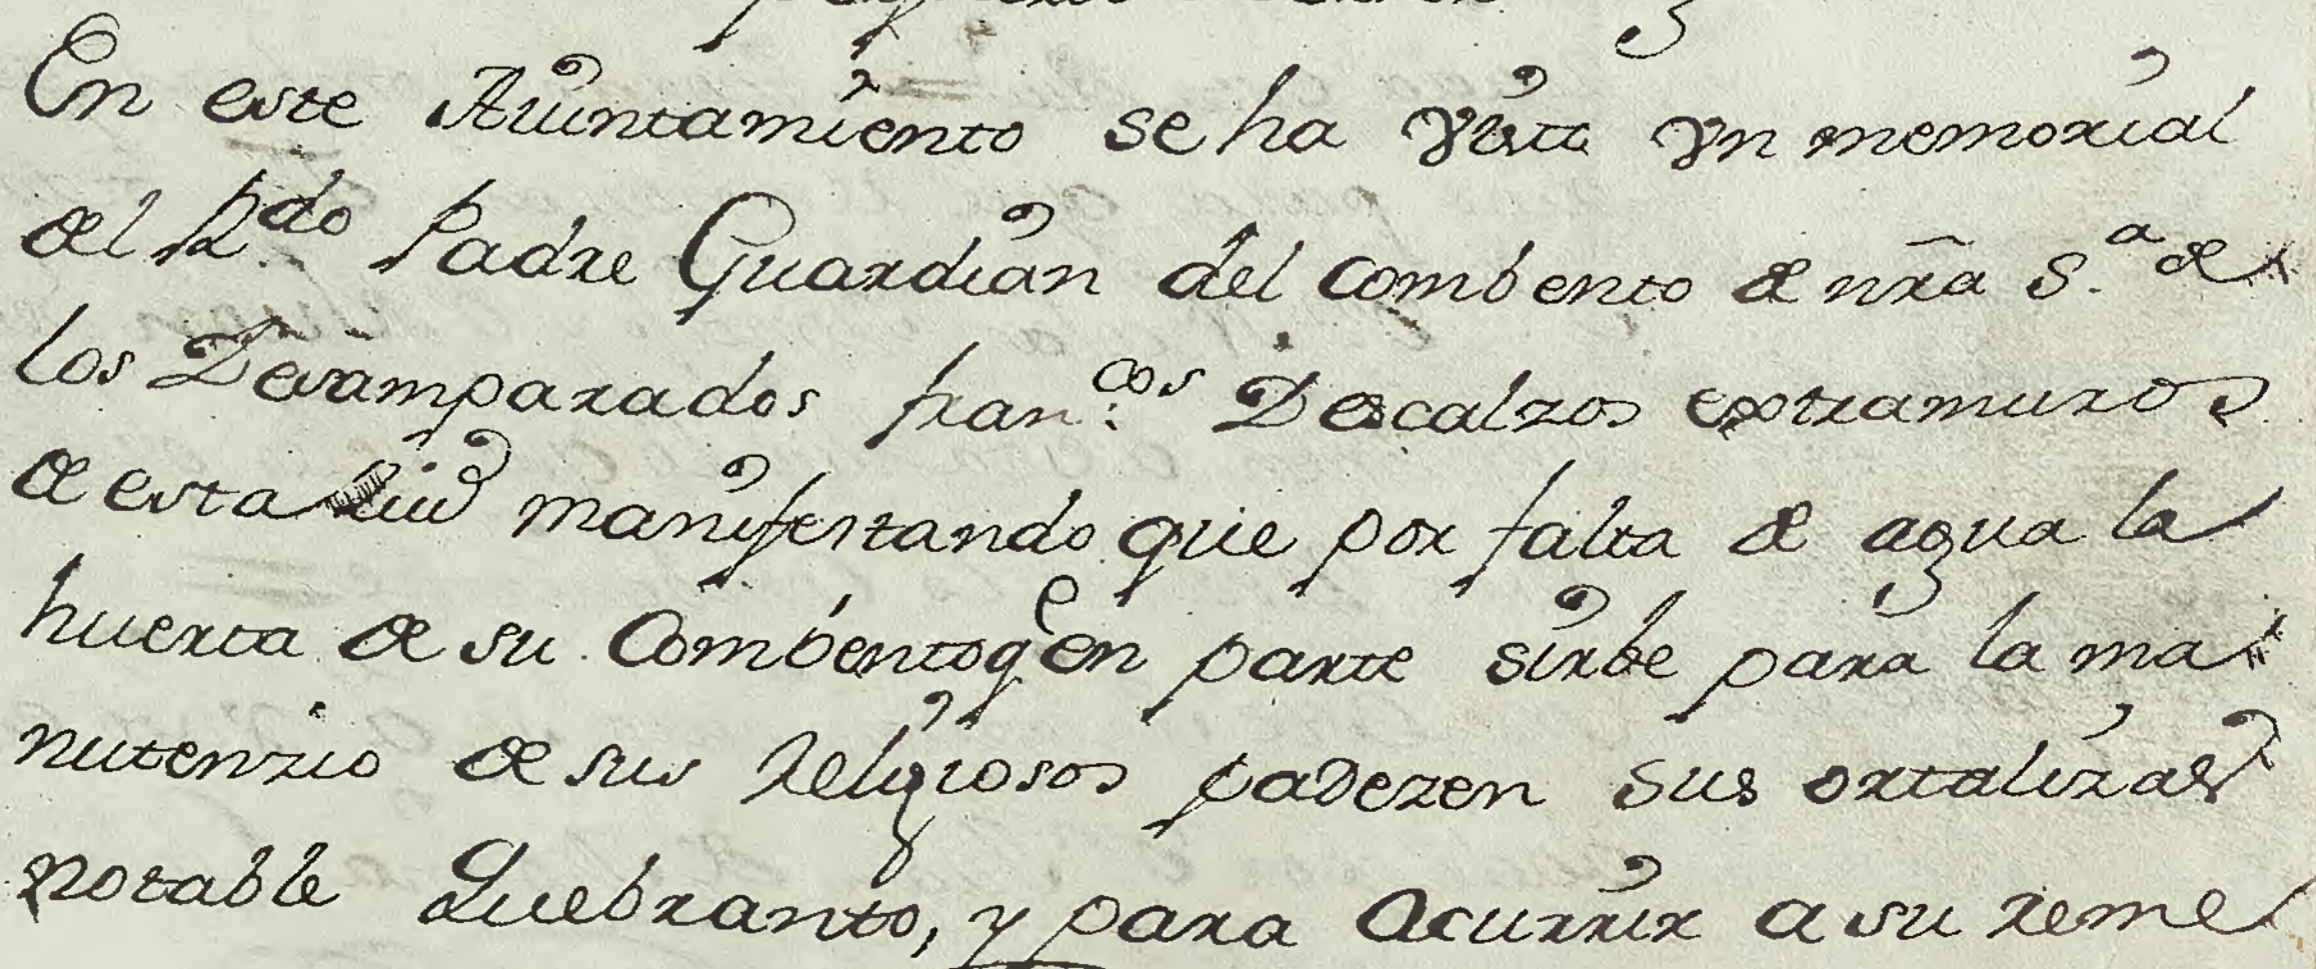 En este Aiuntamiento se ha visto vn memorial
del R.do Padre Guardian del combento de nra S.a de
los Desamparados fran.cos Descalzos extramuros
de esta Ciud manifestando que por falta de agua la
huerta de su Combento q e en parte sirbe para la ma
nutenzio de sus religiosos padezen sus ortalizas
notable Quebranto, y para Ocurrir a su reme